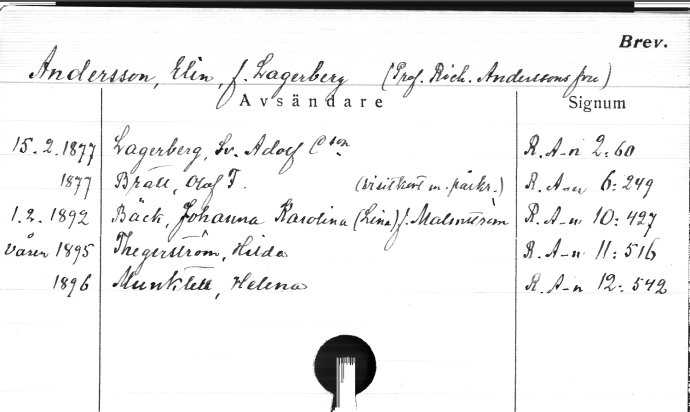 Brev.
Andersson, Elin, f. Lagerberg (Prof. Rich. Anderssons fru)
Avsändare Signum
15.2.1877 Lagerberg, Sv. Adolf Cson R. A-n 2:60
1877 Bratt, Olof F. (visitkort m. påskr.) R. A-n 6:249
1.2.1892 Bäck, Johanna Karolina (Lina) f. R. A-n 10:427
våren 1895 Thegerström, Hilda R. A-n 11:516
1896 Munktell, Helena R. A-n 12:542